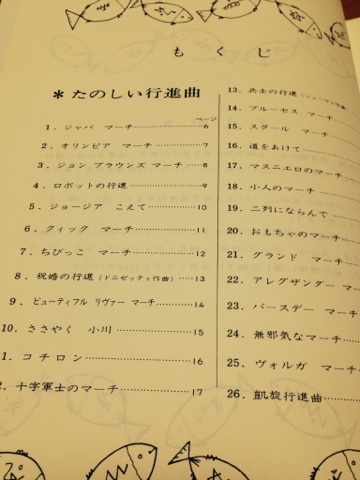 もくじ
＊たのしい行進曲
ページ
1．ジャバ　マーチ……6
2．オリンピア　マーチ……7
3．ジョン ブラウンズ マーチ……8
4．ロボットの行進……9
5．ジョージア　こえて……10
6．クィック　マーチ……11
7．ちびっこ　マーチ……12
8．祝婚の行進（ドニゼッティ作曲）……13
9．ビューティフル リヴァー マーチ……14
10．ささやく　小川……15
1．コチロン……16
2．十字軍士のマーチ……17
13．兵士の行進（シューマン作曲）
14．ブルーセス　マーチ
15．スクール　マーチ……
16．道をあけて……
17．マスニエロのマーチ……
18．小人のマーチ……
19．二列にならんで……
20．おもちゃのマーチ……
21．グランド　マーチ……
22．アレグザンダー　マー
23．バースデー　マーチ…
24．無邪気なマーチ……
25．ヴォルガ　マーチ…
26．凱旋行進曲……